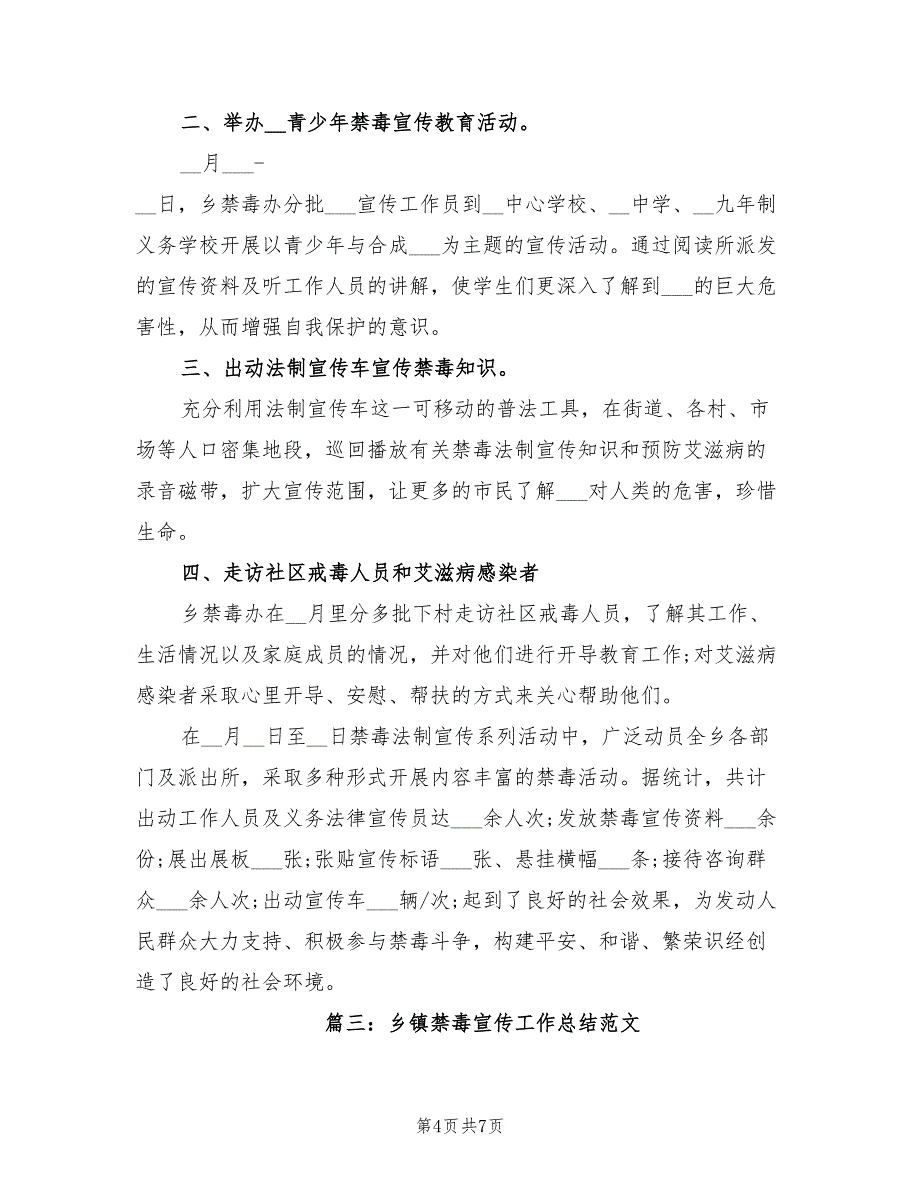 二、举办__青少年禁毒宣传教育活动。
__月___-
__日，乡禁毒办分批___宣传工作员到__中心学校、__中学、__九年制
义务学校开展以青少年与合成___为主题的宣传活动。通过阅读所派发
的宣传资料及听工作人员的讲解，使学生们更深入了解到___的巨大危
害性，从而增强自我保护的意识。
三、出动法制宣传车宣传禁毒知识。
充分利用法制宣传车这一可移动的普法工具，在街道、各村、市
场等人口密集地段，巡回播放有关禁毒法制宣传知识和预防艾滋病的
录音磁带，扩大宣传范围，让更多的市民了解___对人类的危害，珍惜
生命。
四、走访社区戒毒人员和艾滋病感染者
乡禁毒办在__月里分多批下村走访社区戒毒人员，了解其工作、
生活情况以及家庭成员的情况，并对他们进行开导教育工作;对艾滋病
感染者采取心里开导、安慰、帮扶的方式来关心帮助他们。
在__月__日至__日禁毒法制宣传系列活动中，广泛动员全乡各部
门及派出所，采取多种形式开展内容丰富的禁毒活动。据统计，共计
出动工作人员及义务法律宣传员达___余人次;发放禁毒宣传资料___余
份;展出展板___张;张贴宣传标语___张、悬挂横幅___条;接待咨询群
众___余人次;出动宣传车___辆/次;起到了良好的社会效果，为发动人
民群众大力支持、积极参与禁毒斗争，构建平安、和谐、繁荣识经创
造了良好的社会环境。
篇三：乡镇禁毒宣传工作总结范文
第4页共7页